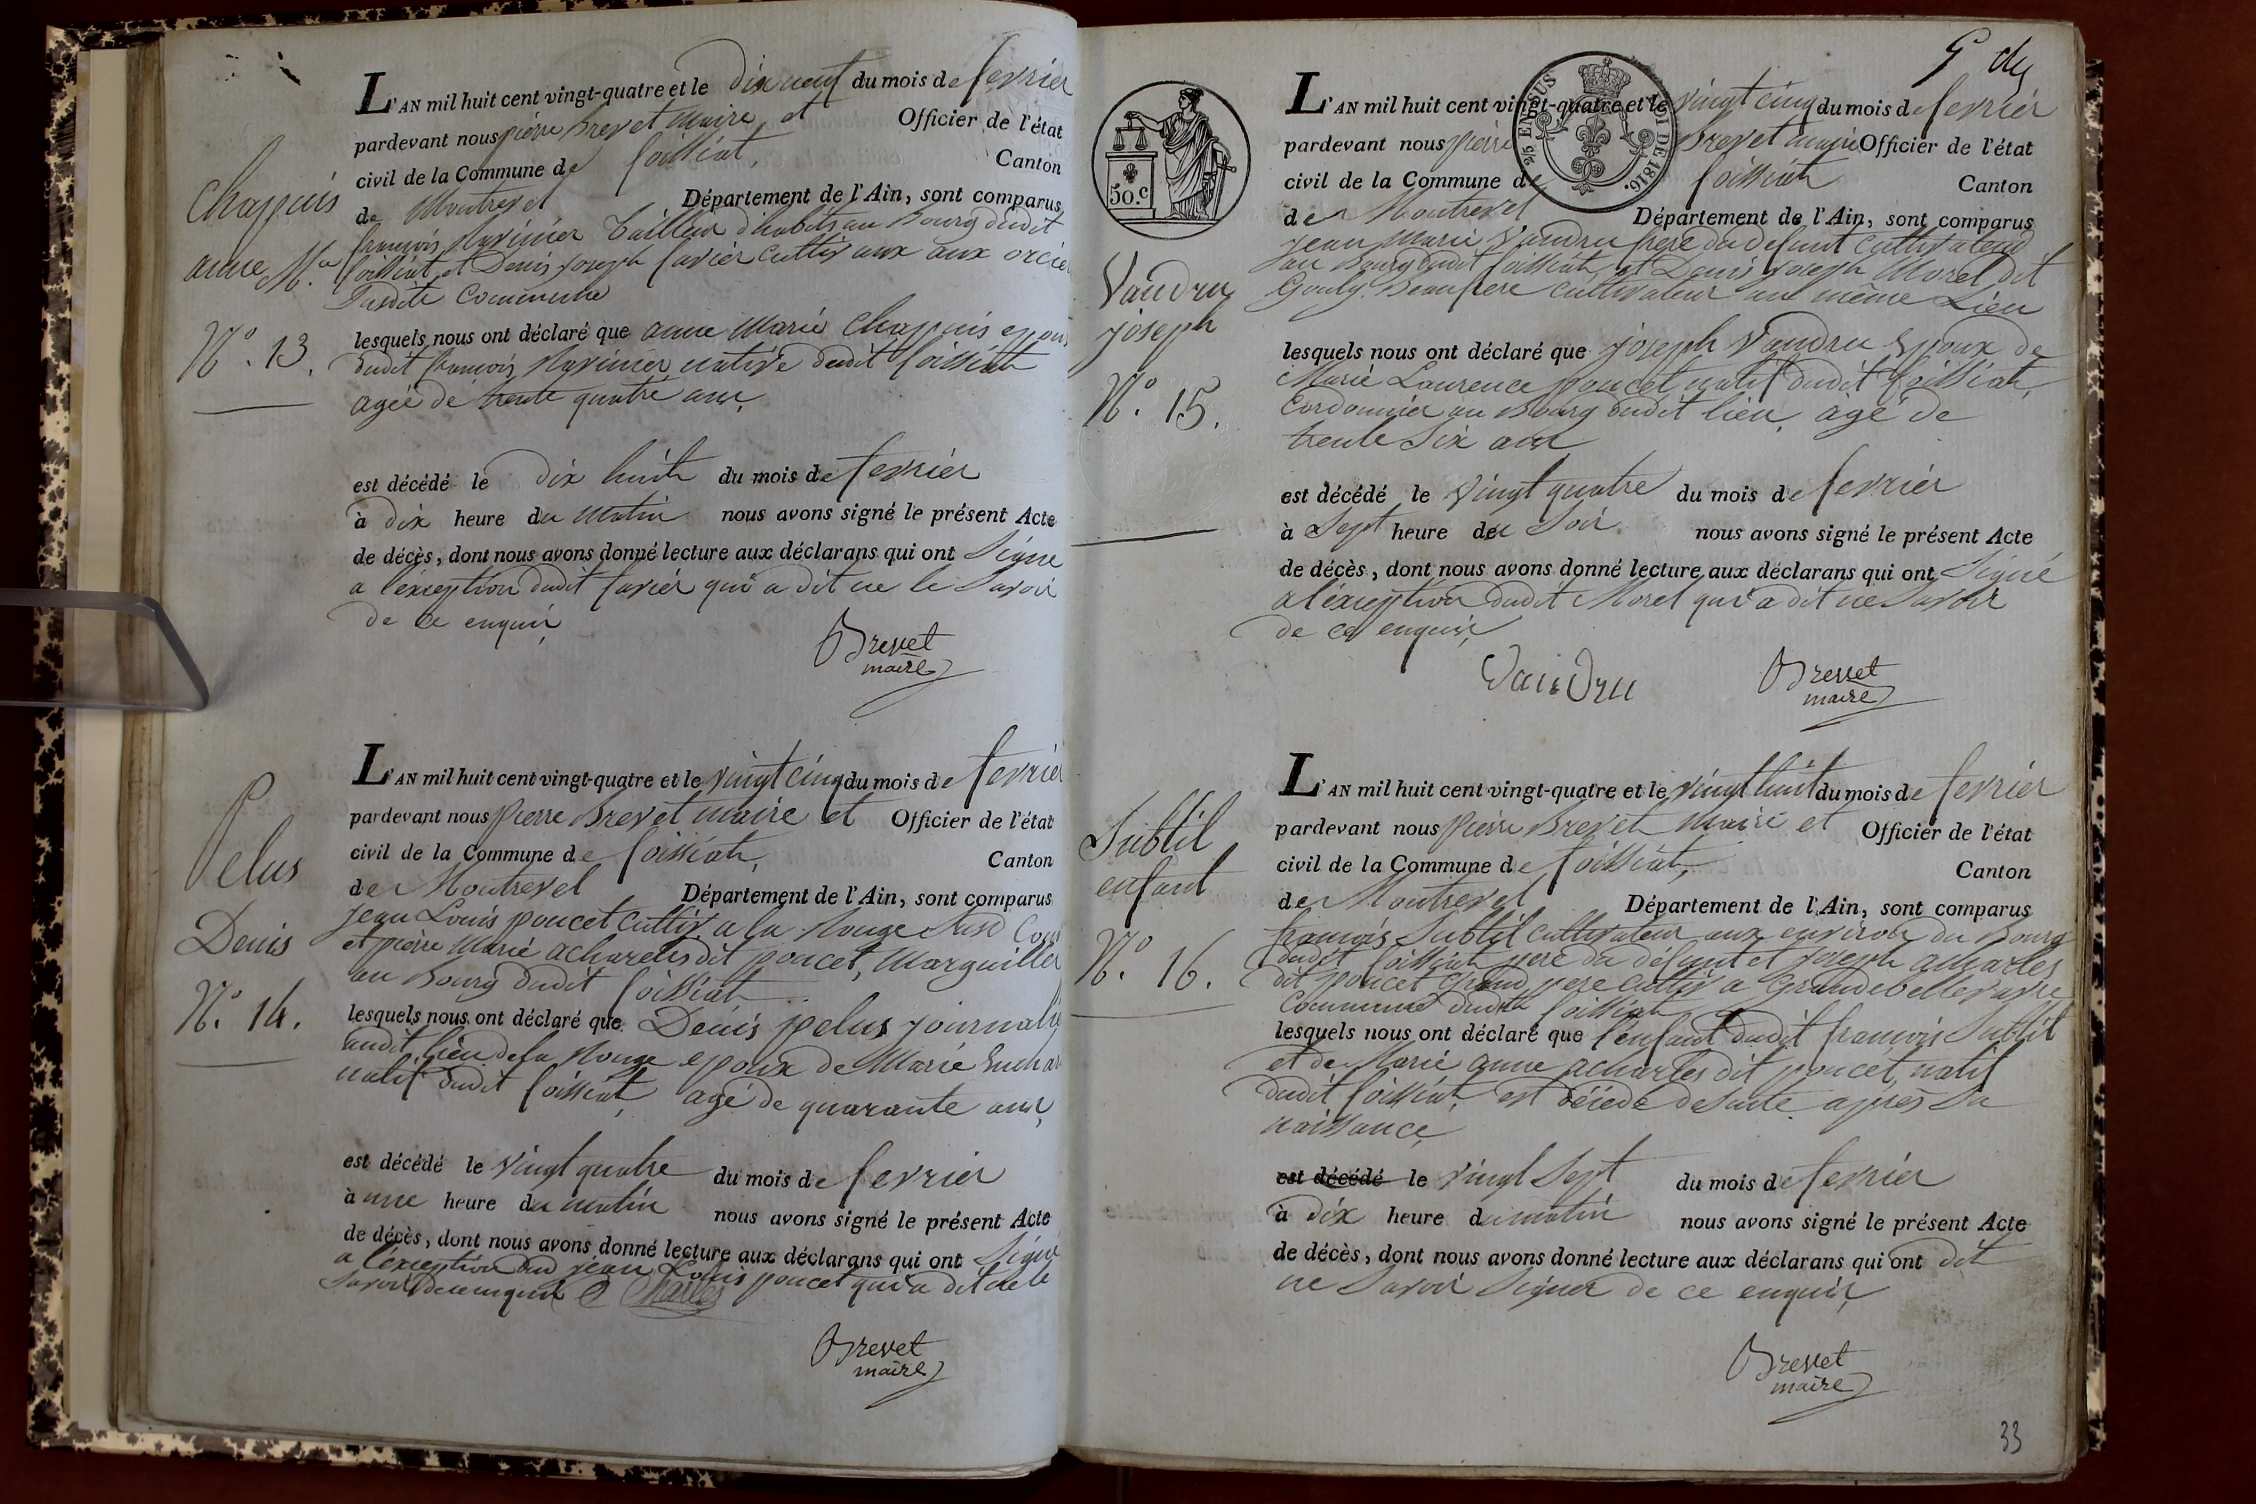 Chappuis
anne M.ie
N.o 13.
L'AN mil huit cent vingt-quatre et le dix neuf du mois de fevrier
pardevant nous pierre Brevet maire et Officier de l'état
civil de la Commune de foissiat, Canton
de Montrevel Département de l'Ain, sont comparus
françois Tailleur d'habits au Bourg dudit
foissiat, et Denis joseph favier cultiv aux
Susdite Commune
lesquels nous ont déclaré que anne Marie Chappuis epouse
dudit françois native dudit foissiat
agée de trente quatre ans,
est décédé le dix huit du mois de fevrier
à dix heure du matin nous avons signé le présent Acte
de décès, dont nous avons donné lecture aux déclarans qui ont Signé
a l'exception dudit favier qui a dit ne le Savoir
de ce enquis,
Brevet
maire
Pelus
Denis
N.o 14.
L'AN mil huit cent vingt-quatre et le vingt cinq du mois de fevrier
pardevant nous pierre Brevet maire et Officier de l'état
civil de la Commune de foissiat, Canton
de Montrevel Département de l'Ain, sont comparus
jean Louis poucet cultiv a la Susd
et pierre Marie acharles dit poucet, Marguiller
au Bourg dudit foissiat
lesquels nous ont déclaré que Denis pelus journalier
audit lieu de la epoux de Marie
natif dudit foissiat, agé de quarante ans,
est décédé le vingt quatre du mois de fevrier
à une heure du matin nous avons signé le présent Acte
de décès, dont nous avons donné lecture aux déclarans qui ont Signé
a l'exception dud jean Louis poucet qui a dit ne le
Savoir de ce enquis
Brevet
maire
25 EN SUS
LOI DE 1816.
50.c
Vandru
joseph
N.o 15.
L'AN mil huit cent vingt-quatre et le vingt cinq du mois de fevrier
pardevant nous pierre Brevet maire Officier de l'état
civil de la Commune de foissiat Canton
de Montrevel Département de l'Ain, sont comparus
jean Marie Vandru frere du defunt cultivateur
au Bourg dudit foissiat, et Denis joseph Morel dit
Gouly Beaufrere cultivateur au même Lieu
lesquels nous ont déclaré que joseph Vandru Epoux de
Marie Laurence poucet natif dudit foissiat,
Cordonnier au Bourg dudit lieu, agé de
trente Six ans
est décédé le vingt quatre du mois de fevrier
à Sept heure du Soir nous avons signé le présent Acte
de décès, dont nous avons donné lecture aux déclarans qui ont Signé
a l'exception dudit Morel qui a dit ne Savoir
de ce enquis,
Vandru
Brevet
maire
Subtil
enfant
N.o 16.
L'AN mil huit cent vingt-quatre et le vingt huit du mois de fevrier
pardevant nous pierre Brevet Maire et Officier de l'état
civil de la Commune de foissiat, Canton
de Montrevel Département de l'Ain, sont comparus
françois Subtil cultivateur aux environ du Bourg
dudit foissiat pere du défunt et joseph acharles
dit poucet grand pere cultiv a Grandebellevavre
Commune dudit foissiat
lesquels nous ont déclaré que l'enfant dudit françois Subtil
et de Marie anne acharles dit poucet, natif
dudit foissiat, est décédé desuite après Sa
naissance,
est décédé le vingt Sept du mois de fevrier
à dix heure du matin nous avons signé le présent Acte
de décès, dont nous avons donné lecture aux déclarans qui ont dit
ne Savoir Signer de ce enquis,
Brevet
maire
33